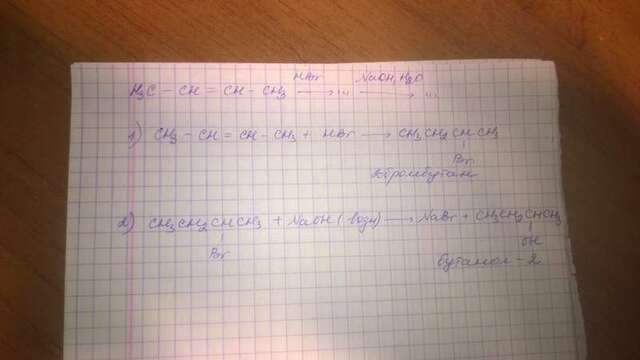 H₃C – CH = CH – CH₃ HBr → ... NaOH, H₂O → ...
1) CH₃ – CH = CH – CH₃ + HBr → CH₃CH₂CHCH₃
Br
2-бромбутан
2) CH₃CH₂CHCH₃ + NaOH (водн) → NaBr + CH₃CH₂CHCH₃
Br OH
бутанол - 2